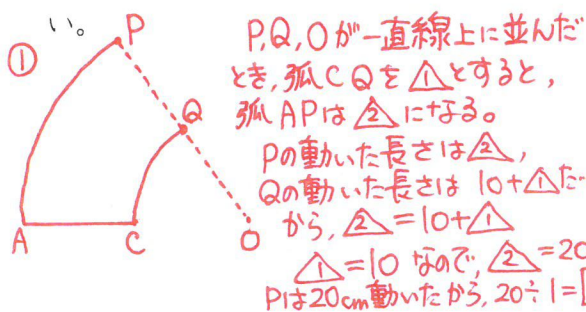 い。
①
P
Q
A
C
O
P,Q,Oが一直線上に並んだ
とき,弧CQを△1とすると,
弧APは△2になる。
Pの動いた長さは△2,
Qの動いた長さは 10+△1だ
から,△2=10+△1
△1=10 なので,△2=20
Pは20cm動いたから,20÷1=